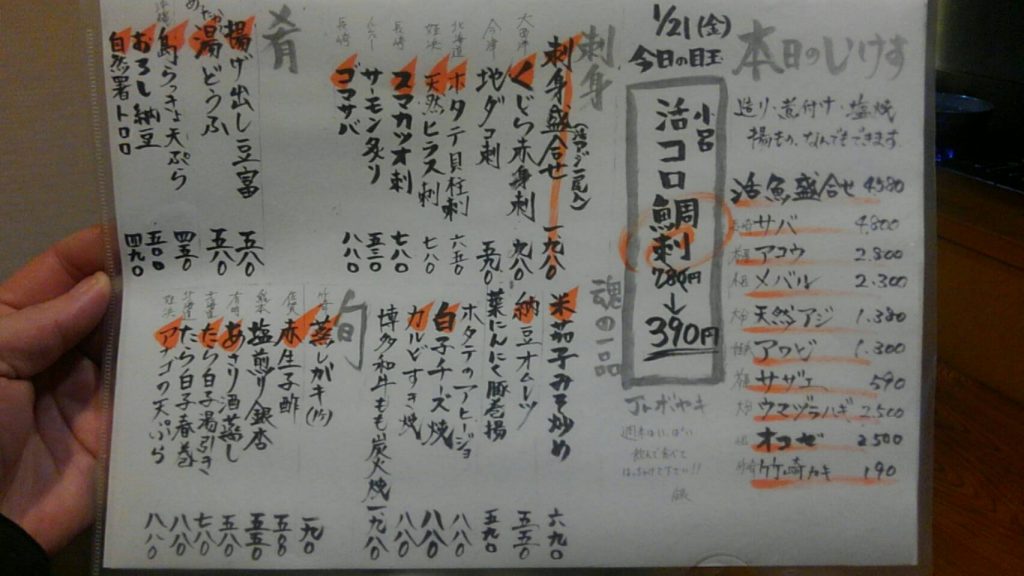 本日のいけす
造り、煮付け、塩焼
揚もの、なんでもできます
活魚盛合せ 4580
サバ 4.800
アコウ 2.800
メバル 2.300
天然アジ 1.380
アワビ 1.300
サザエ 590
ウマヅラハギ 2.500
オコゼ 2500
竹崎カキ 190
1/21(金)
今日の目玉
活コロ鯛刺
780円→390円
刺身
刺身盛合せ 一九八〇
くじら赤身刺 九八〇
地ダコ刺
北海道 ホタテ貝柱刺 六五〇
天然ヒラス刺 七八〇
長崎 スマカツオ刺 七八〇
サーモン炙り 五三〇
長崎 ゴマサバ 八八〇
肴
揚げ出し豆富 五八〇
湯どうふ 五八〇
島らっきょ天ぷら 四五〇
おろし納豆 五〇〇
自然薯トロロ 四九〇
魂の一品
米茄子みそ炒め 六九〇
納豆オムレツ 五五〇
菜にんにく豚巻揚 五九〇
ホタテのアヒージョ 八八〇
白子チーズ焼 八八〇
カルビすき焼 八八〇
博多和牛もも炭火焼 一九八〇
旬
蒸しガキ 一九〇
赤生子酢 五八〇
塩煎り銀杏 五五〇
あさり酒蒸し 五八〇
たら白子湯引き 七八〇
たら白子春巻 八八〇
アナゴの天ぷら 八八〇